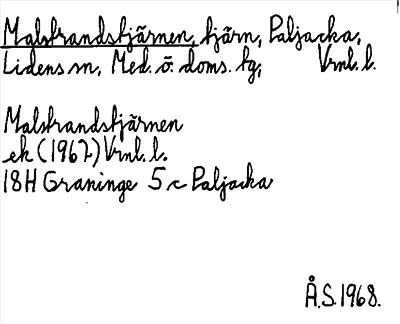 Malstrandstjärnen, tjärn, Paljacka,
Lidens sn, Med. ö. doms. tg, Vrnl. l.
Malstrandstjärnen
ek (1962) Vrnl. l.
18H Graninge 5 c Paljacka
Å.S. 1968.